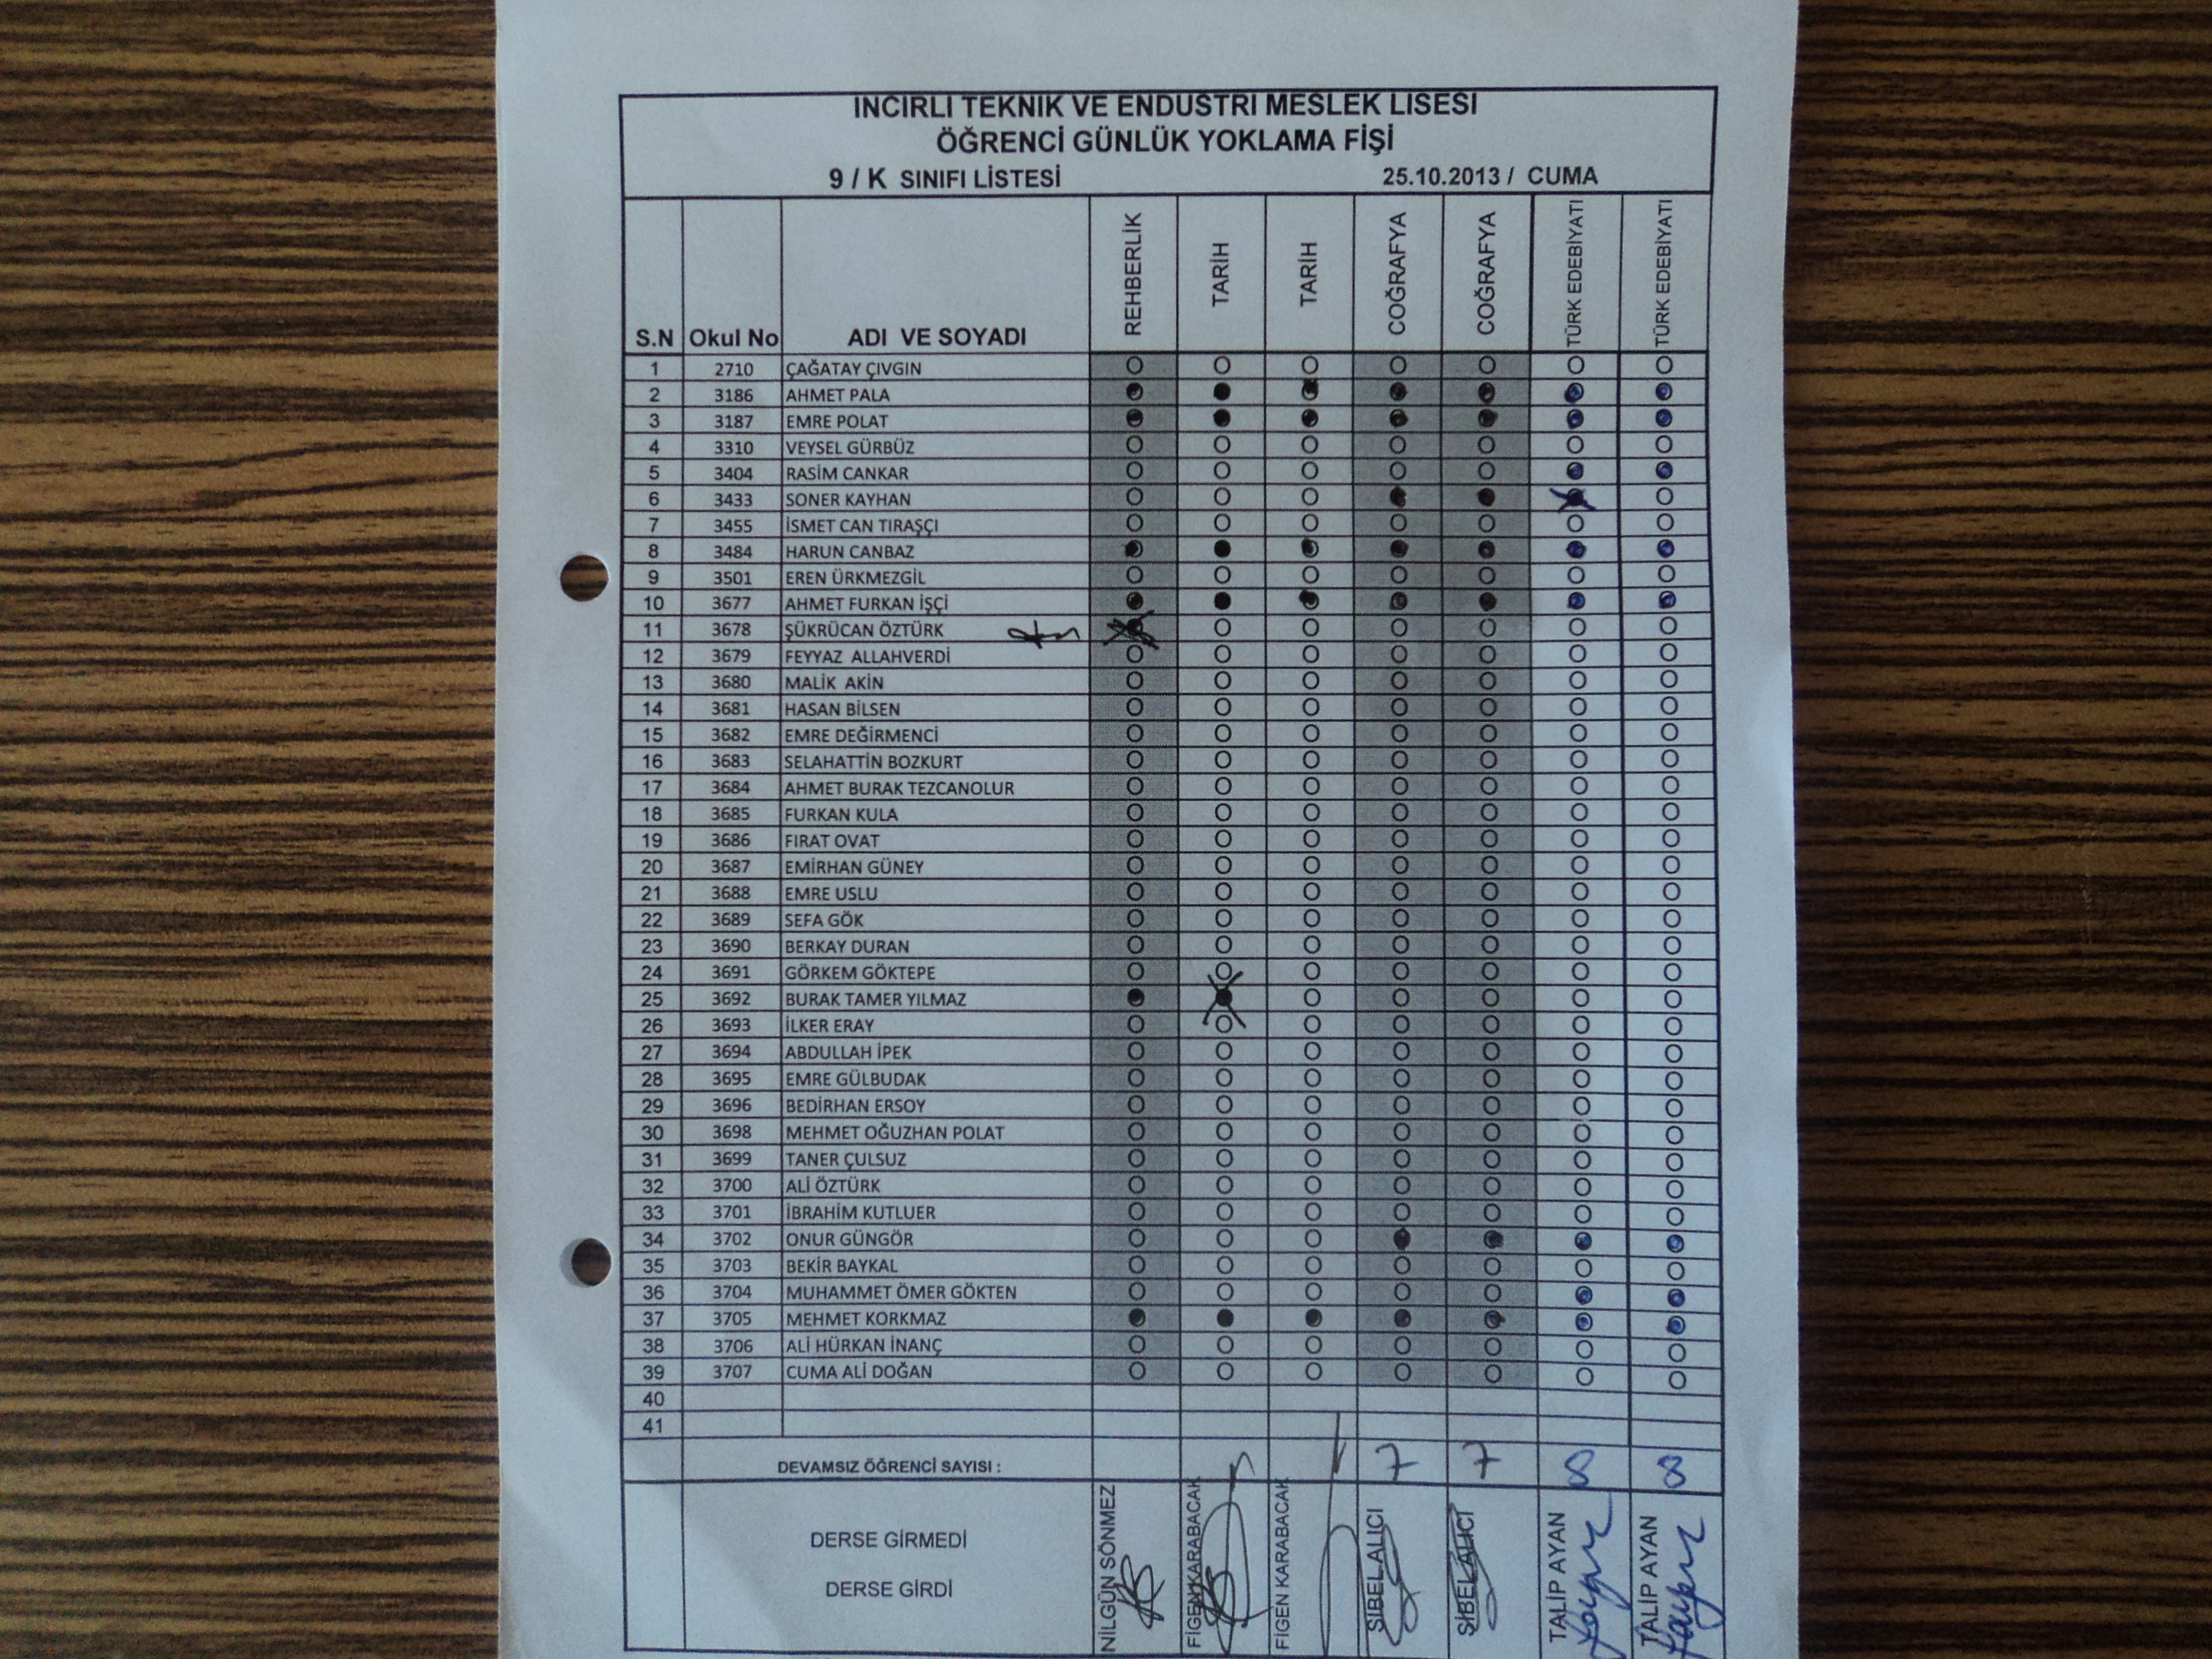 İNCİRLİ TEKNİK VE ENDÜSTRİ MESLEK LİSESİ
ÖĞRENCİ GÜNLÜK YOKLAMA FİŞİ
9 / K SINIFI LİSTESİ 25.10.2013 / CUMA
S.N Okul No ADI VE SOYADI REHBERLİK TARİH TARİH COĞRAFYA COĞRAFYA TÜRK EDEBİYATI TÜRK EDEBİYATI
1 2710 ÇAĞATAY ÇIVGIN
2 3186 AHMET PALA
3 3187 EMRE POLAT
4 3310 VEYSEL GÜRBÜZ
5 3404 RASİM CANKAR
6 3433 SONER KAYHAN
7 3455 İSMET CAN TIRAŞÇI
8 3484 HARUN CANBAZ
9 3501 EREN ÜRKMEZGİL
10 3677 AHMET FURKAN İŞÇİ
11 3678 ŞÜKRÜCAN ÖZTÜRK
12 3679 FEYYAZ ALLAHVERDİ
13 3680 MALİK AKİN
14 3681 HASAN BİLSEN
15 3682 EMRE DEĞİRMENCİ
16 3683 SELAHATTİN BOZKURT
17 3684 AHMET BURAK TEZCANOLUR
18 3685 FURKAN KULA
19 3686 FIRAT OVAT
20 3687 EMİRHAN GÜNEY
21 3688 EMRE USLU
22 3689 SEFA GÖK
23 3690 BERKAY DURAN
24 3691 GÖRKEM GÖKTEPE
25 3692 BURAK TAMER YILMAZ
26 3693 İLKER ERAY
27 3694 ABDULLAH İPEK
28 3695 EMRE GÜLBUDAK
29 3696 BEDİRHAN ERSOY
30 3698 MEHMET OĞUZHAN POLAT
31 3699 TANER ÇULSUZ
32 3700 ALİ ÖZTÜRK
33 3701 İBRAHİM KUTLUER
34 3702 ONUR GÜNGÖR
35 3703 BEKİR BAYKAL
36 3704 MUHAMMET ÖMER GÖKTEN
37 3705 MEHMET KORKMAZ
38 3706 ALİ HÜRKAN İNANÇ
39 3707 CUMA ALİ DOĞAN
40
41
DEVAMSIZ ÖĞRENCİ SAYISI : 7 7 8 8
DERSE GİRMEDİ
DERSE GİRDİ
NİLGÜN SÖNMEZ
FİGEN KARABACAK
FİGEN KARABACAK
SİBEL ALICI
SİBEL ALICI
TALİP AYAN
TALİP AYAN